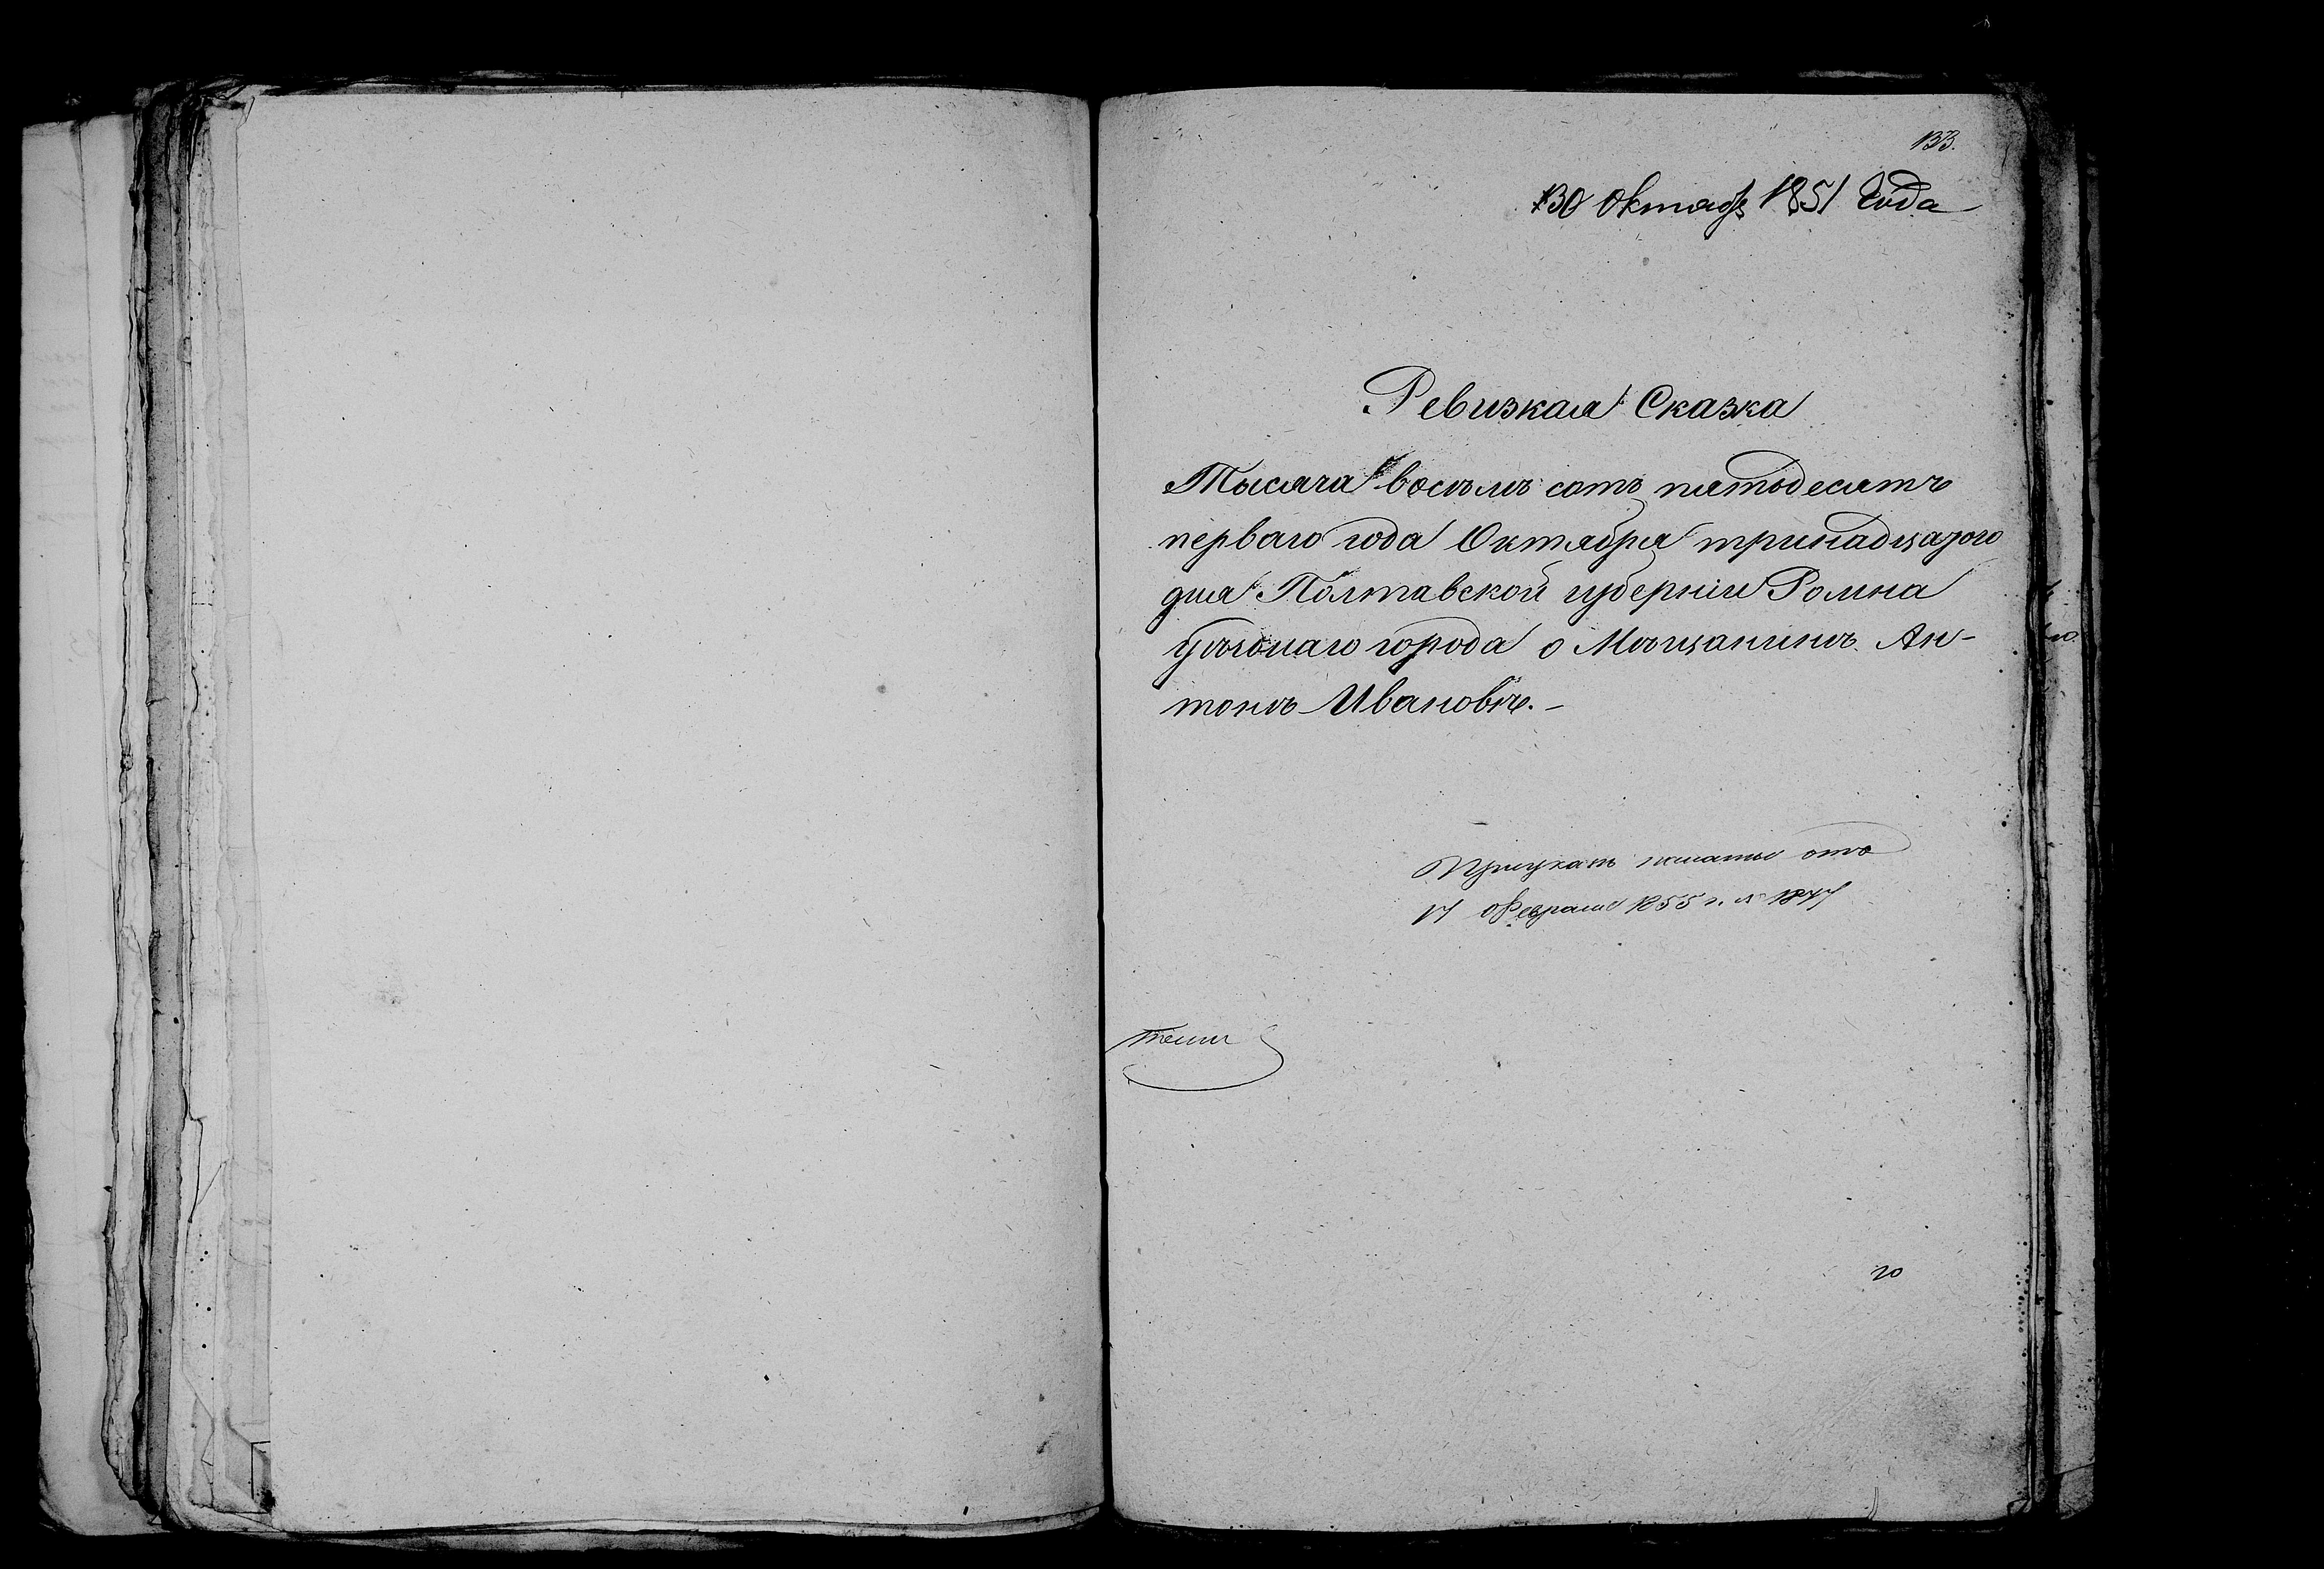 133.
30 Октября 1851 Года
Ревизкая Сказка
Тысяча восъмъ сотъ пятьдесятъ
перваго года Октября тринадцатого
дня Полтавской губерніи Ромна
уѣзднаго города о Мѣщанинѣ Ан-
тонѣ Ивановѣ.-
При указѣ палаты отъ
17 Февраля 1855 г. №
20